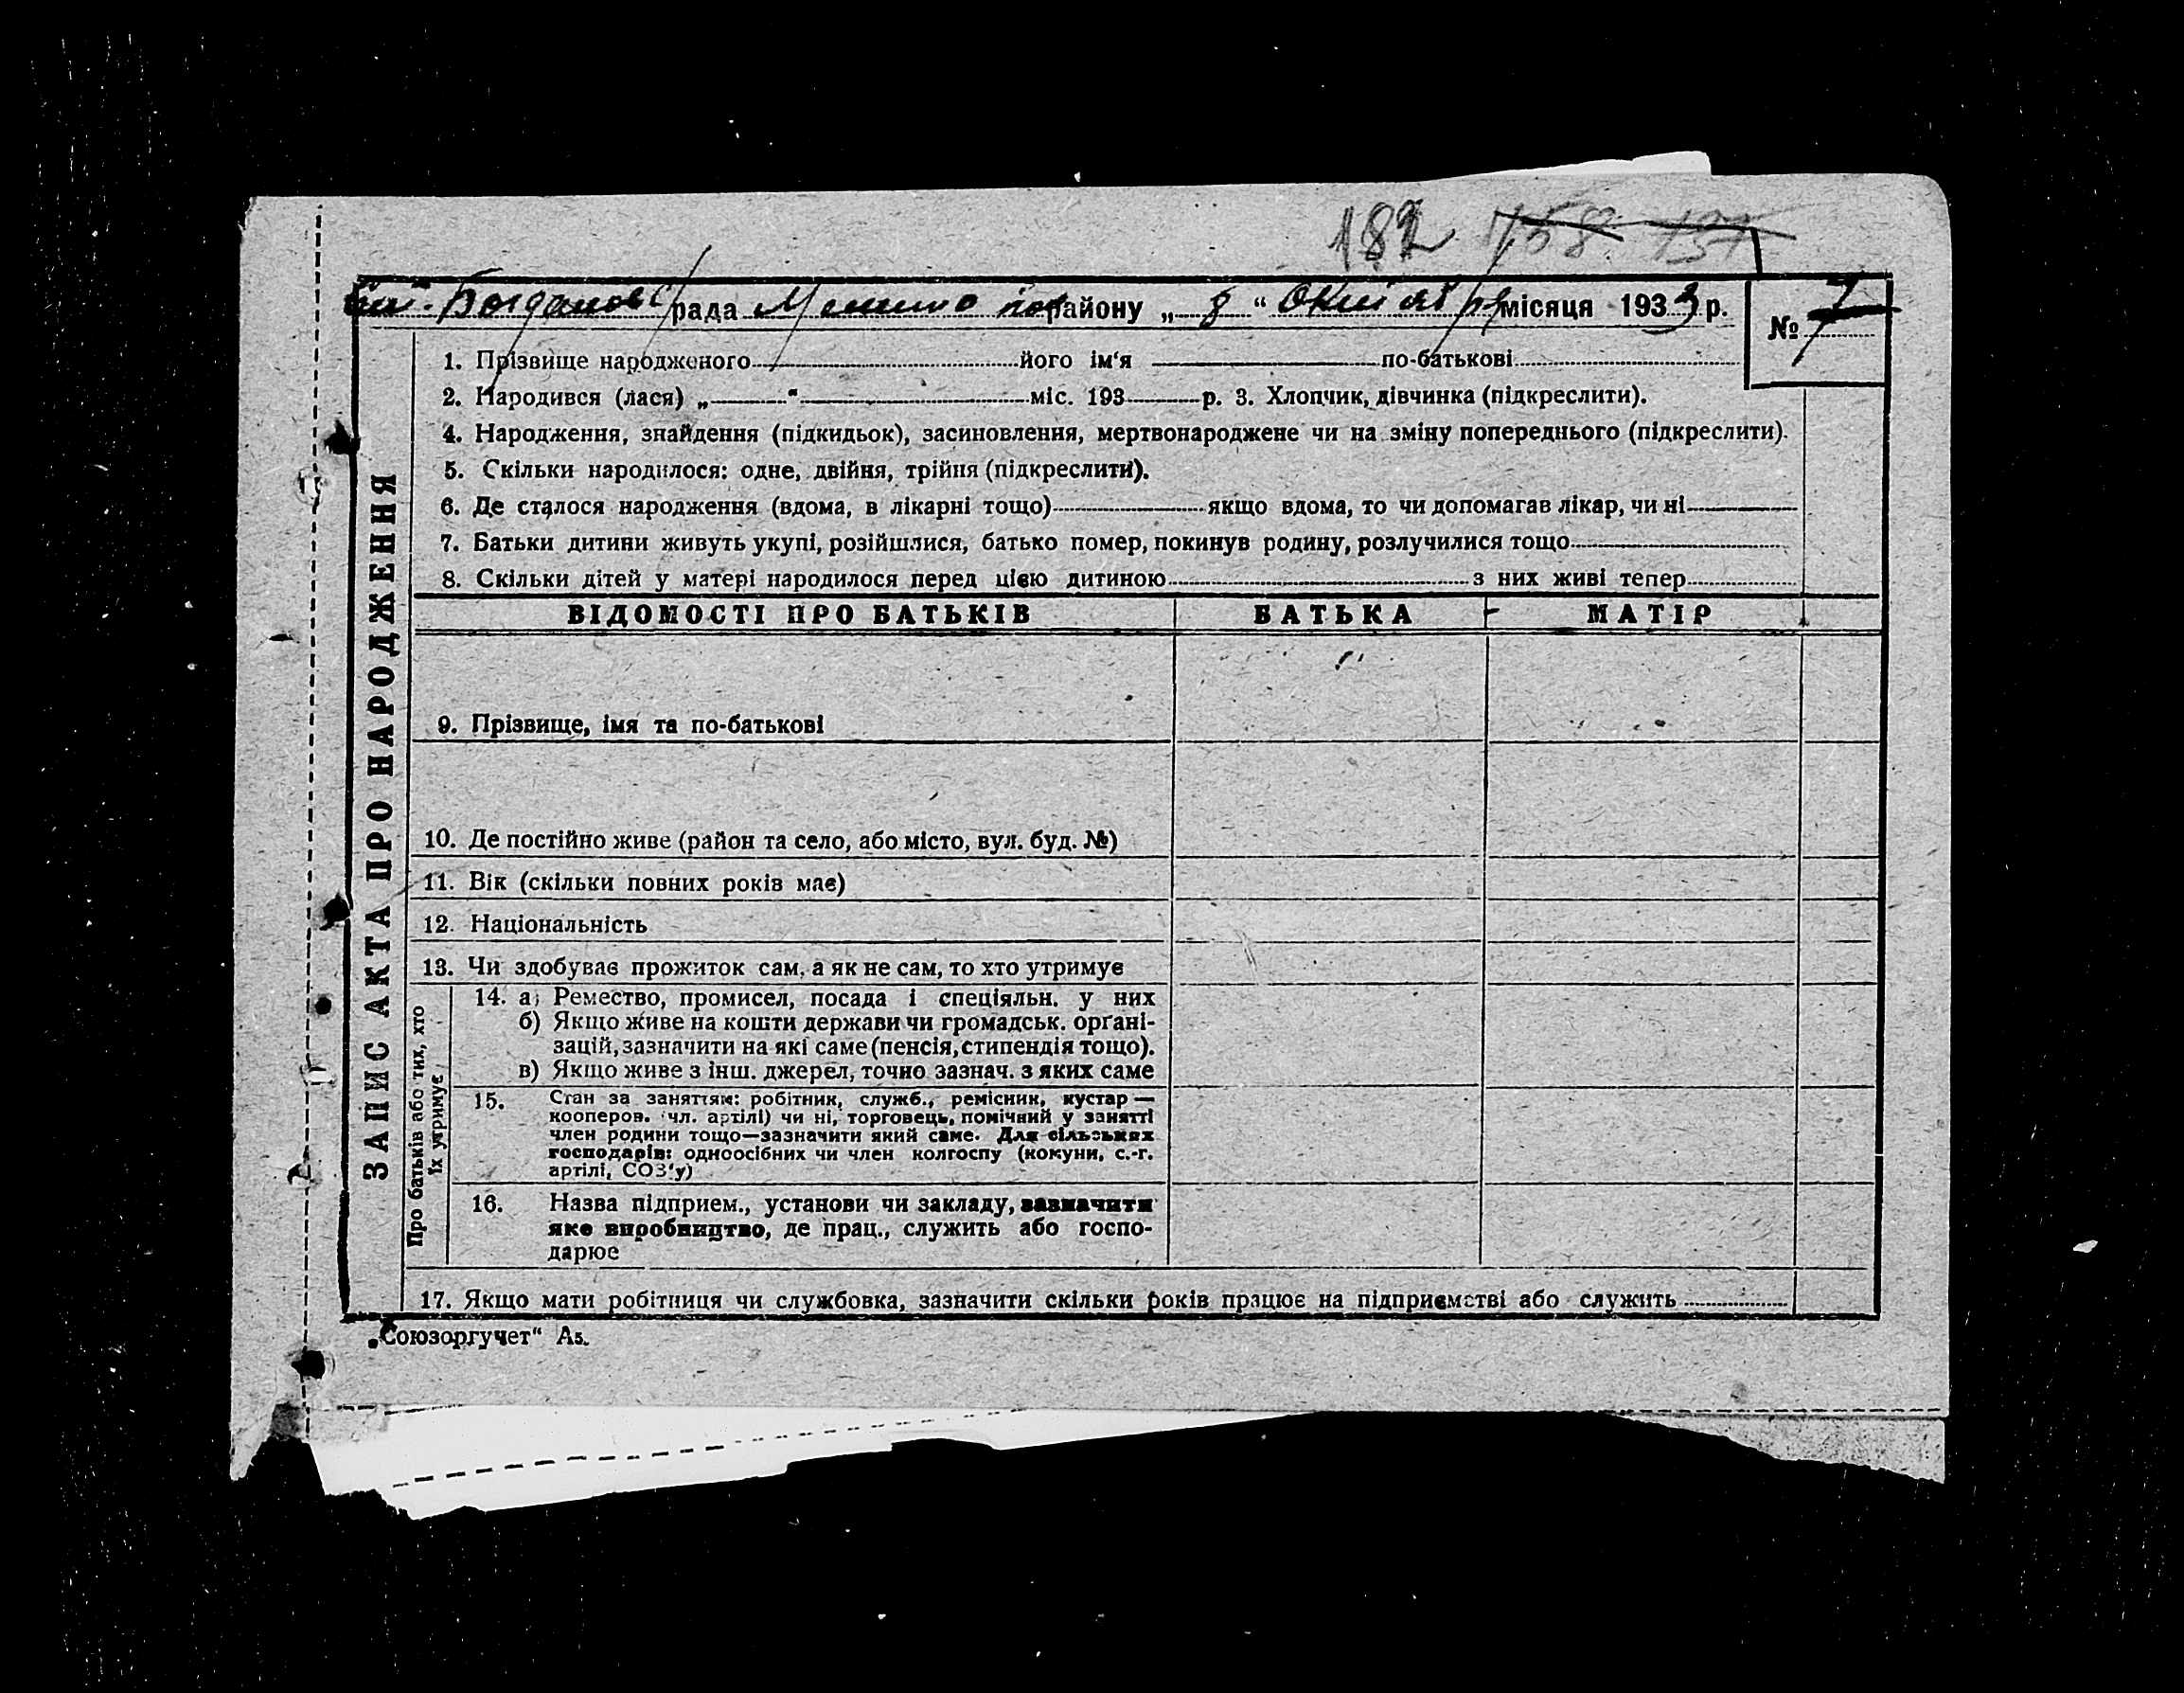 182 158 137
Богданов рада району „ 8 “ Октября місяця 1933 р.
№ 7
1. Прізвище народженого його ім'я по-батькові
2. Народився (лася) „ “ міс. 193 р. 3. Хлопчик, дівчинка (підкреслити).
4. Народження, знайдення (підкидьок), засиновлення, мертвонароджене чи на зміну попереднього (підкреслити).
5. Скільки народилося: одне, двійня, трійня (підкреслити).
6. Де сталося народження (вдома, в лікарні тощо) якщо вдома, то чи допомагав лікар, чи ні
7. Батьки дитини живуть укупі, розійшлися, батько помер, покинув родину, розлучилися тощо
8. Скільки дітей у матері народилося перед цією дитиною з них живі тепер
ВІДОМОСТІ ПРО БАТЬКІВ БАТЬКА МАТІР
9. Прізвище, імя та по-батькові
10. Де постійно живе (район та село, або місто, вул. буд. №)
11. Вік (скільки повних років має)
12. Національність
13. Чи здобуває прожиток сам, а як не сам, то хто утримує
14. а) Ремество, промисел, посада і спеціяльн. у них
б) Якщо живе на кошти держави чи громадськ. орґані-
зацій, зазначити на які саме (пенсія, стипендія тощо).
в) Якщо живе з інш. джерел, точно зазнач. з яких саме
15. Стан за заняттям: робітник, служб., ремісник, кустар —
кооперов. чл. артілі) чи ні, торговець, помічний у занятті
член родини тощо—зазначити який саме. Для сільських
господарів: одноосібних чи член колгоспу (комуни, с.-г.
артілі, СОЗ'у)
16. Назва підприєм., установи чи закладу, зазначити
яке виробництво, де прац., служить або госпо-
дарює
17. Якщо мати робітниця чи службовка, зазначити скільки років працює на підприємстві або служить
„Союзоргучет“ А5.
ЗАПИС АКТА ПРО НАРОДЖЕННЯ
Про батьків або тих, хто
їх утримує